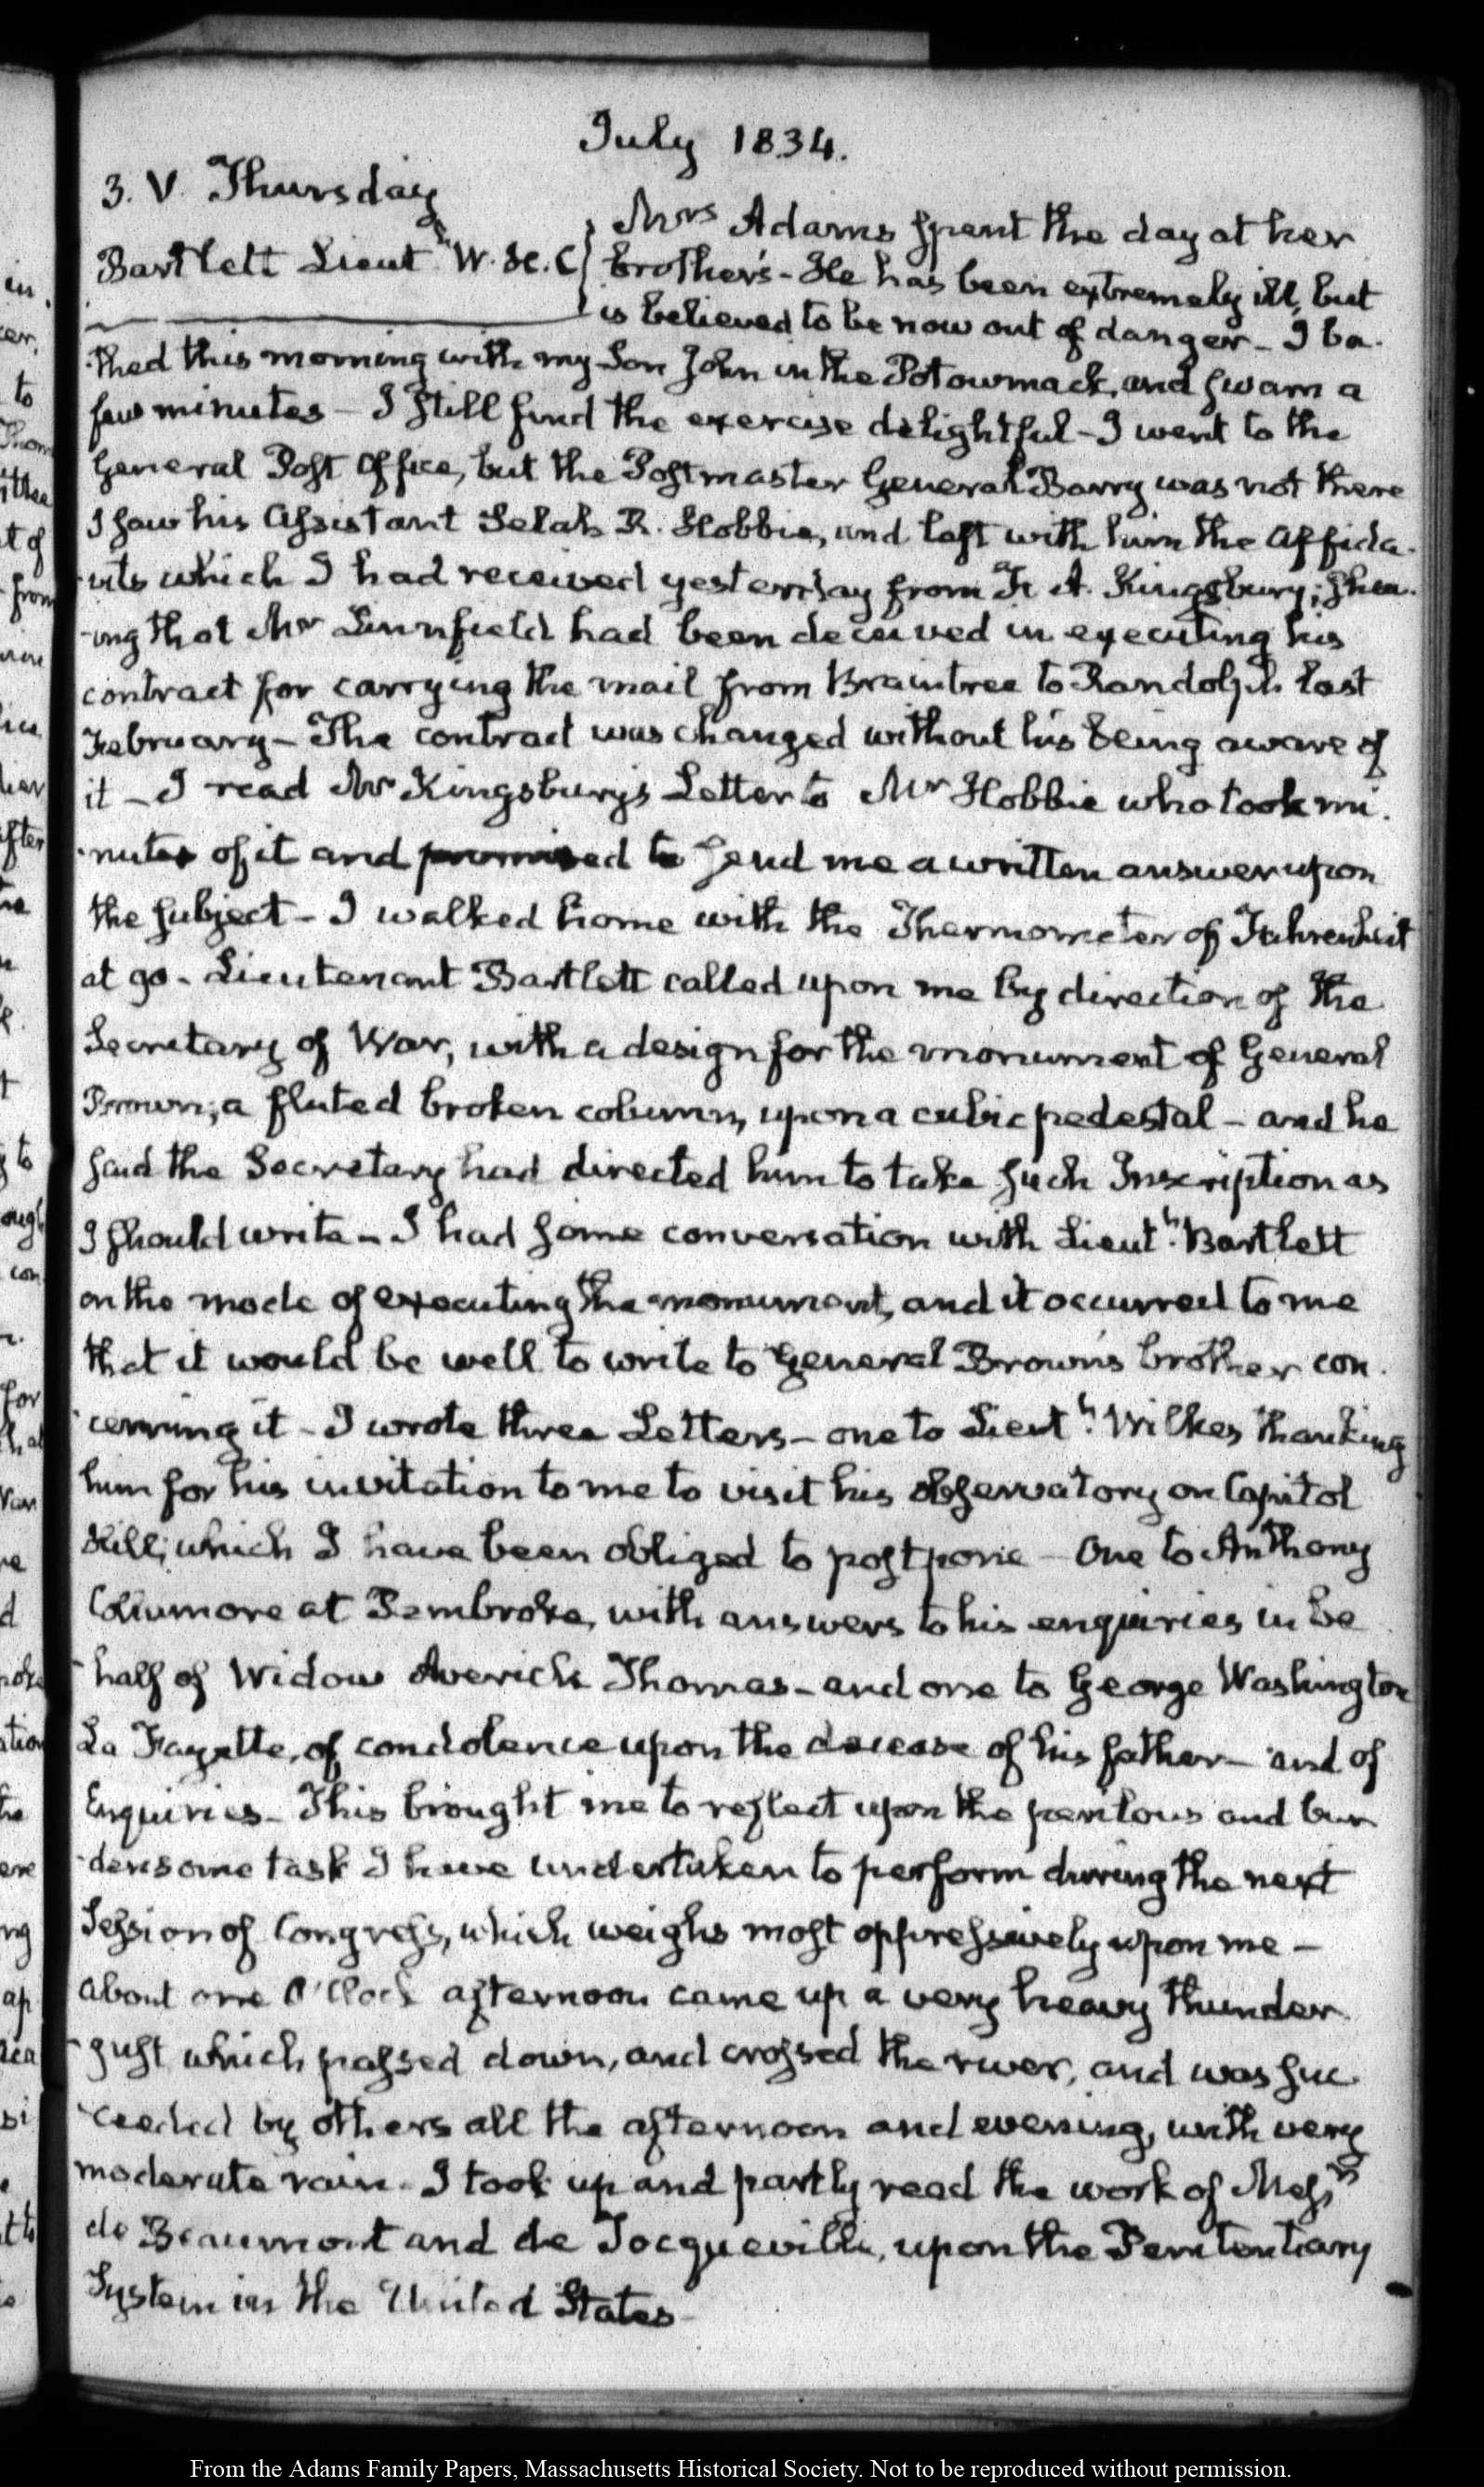 July 1834.
3. V. Thursday
Bartlett Lieut.t W. H. C
Mrs Adams spent the day at her
brother's - He has been extremely ill, but
is believed to be now out of danger - I ba-
thed this morning with my Son John in the Potowmack, and swam a
few minutes - I still find the exercise delightful - I went to the
General Post Office, but the Postmaster General Barry was not there
I saw his Assistant Selah R. Hobbie, and left with him the Affida-
vits which I had received yesterday from F. A. Kingsbury; shew-
ing that Mr Linnfield had been deceived in executing his
contract for carrying the mail from Braintree to Randolph last
February - The contract was changed without his being aware of
it - I read Mr Kingsbury's Letter to Mr Hobbie who took mi-
nutes of it and promised to send me a written answer upon
the subject - I walked home with the Thermometer of Fahrenheit
at 90 - Lieutenant Bartlett called upon me by direction of the
Secretary of War, with a design for the monument of General
Brown; a fluted broken column, upon a cubic pedestal - and he
said the Secretary had directed him to take such Inscription as
I should write - I had some conversation with Lieut.t Bartlett
on the mode of executing the monument, and it occurred to me
that it would be well to write to General Brown's brother con-
cerning it - I wrote three Letters - one to Lieut.t Wilkes thanking
him for his invitation to me to visit his observatory on Capitol
Hill; which I have been obliged to postpone - One to Anthony
Collamore at Pembroke, with answers to his enquiries in be
half of Widow Averick Thomas - and one to George Washington
La Fayette, of condolence upon the decease of his father - and of
Enquiries - This brought me to reflect upon the perilous and bur
-densome task I have undertaken to perform during the next
Session of Congress, which weighs most oppressively upon me -
About one O'Clock afternoon came up a very heavy thunder
gust which passed down, and crossed the river, and was suc-
-ceeded by others all the afternoon and evening, with very
moderate rain - I took up and partly read the work of Messrs
de Beaumont and de Tocqueville, upon the Penitentiary
System in the United States -
From the Adams Family Papers, Massachusetts Historical Society. Not to be reproduced without permission.